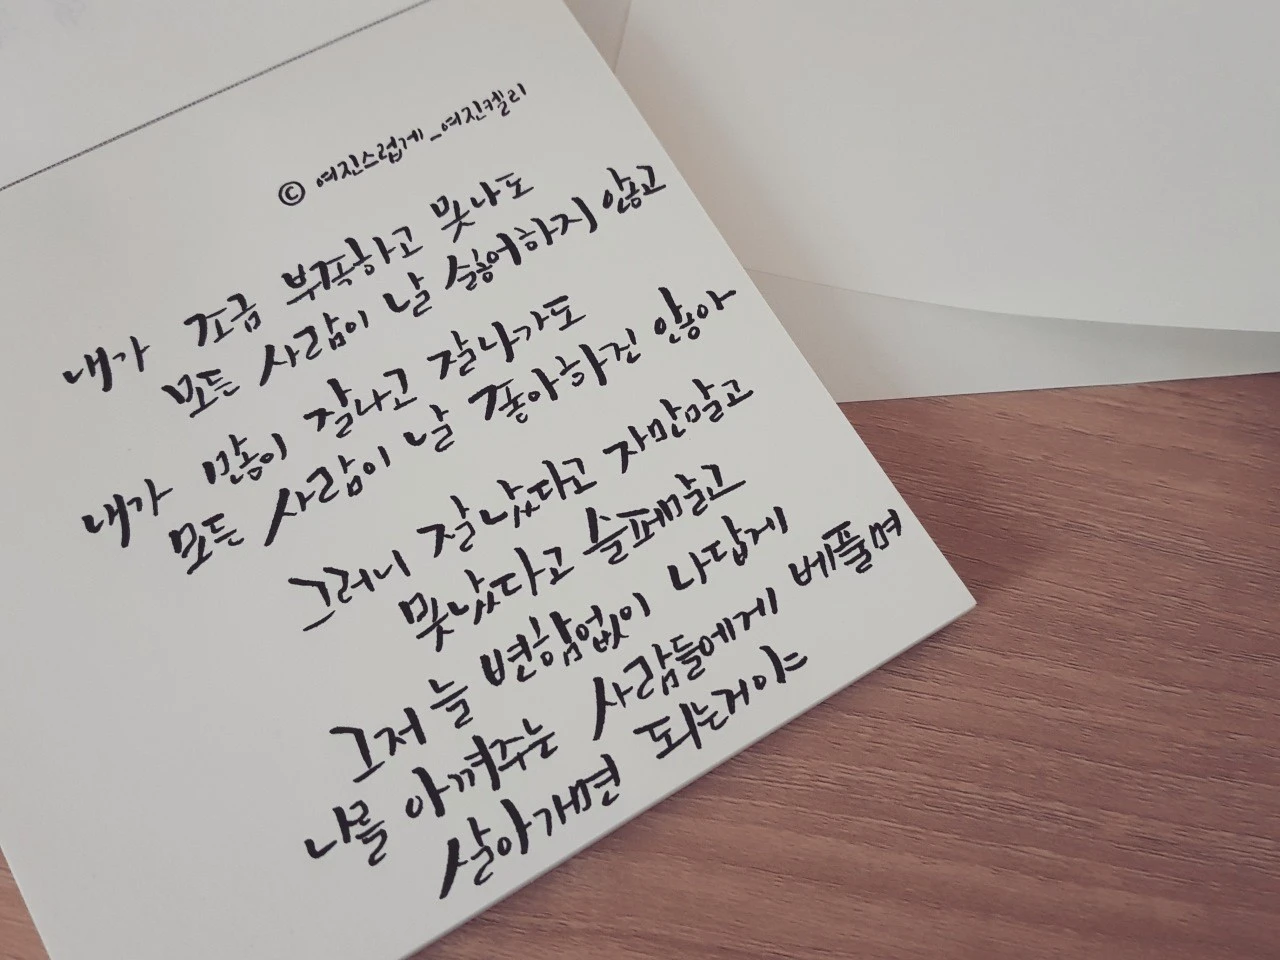 © 여진스럽게_여진켈리
내가 조금 부족하고 못나도
모든 사람이 날 싫어하지 않고
내가 많이 잘나고 잘나가도
모든 사람이 날 좋아하진 않아
그러니 잘났다고 자만말고
못났다고 슬퍼말고
그저 늘 변함없이 나답게
나를 아껴주는 사람들에게 베풀며
살아가면 되는거야